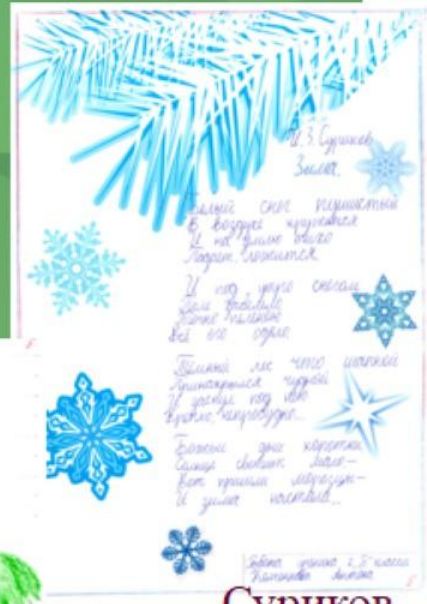 И.З. Суриков
Зима.
Белый снег пушистый
В воздухе кружится
И на землю тихо
Падает, ложится
И под утро снегом
Поле забелело
Точно пеленою
Всё его одело
Тёмный лес что шапкой
Принакрылся чудной
И заснул под нею
Крепко, непробудно...
Божьи дни коротки
Солнце светит мало, –
Вот пришли морозцы –
И зима настала..
Работа ученика 2 "Б" класса
Антона
Суриков